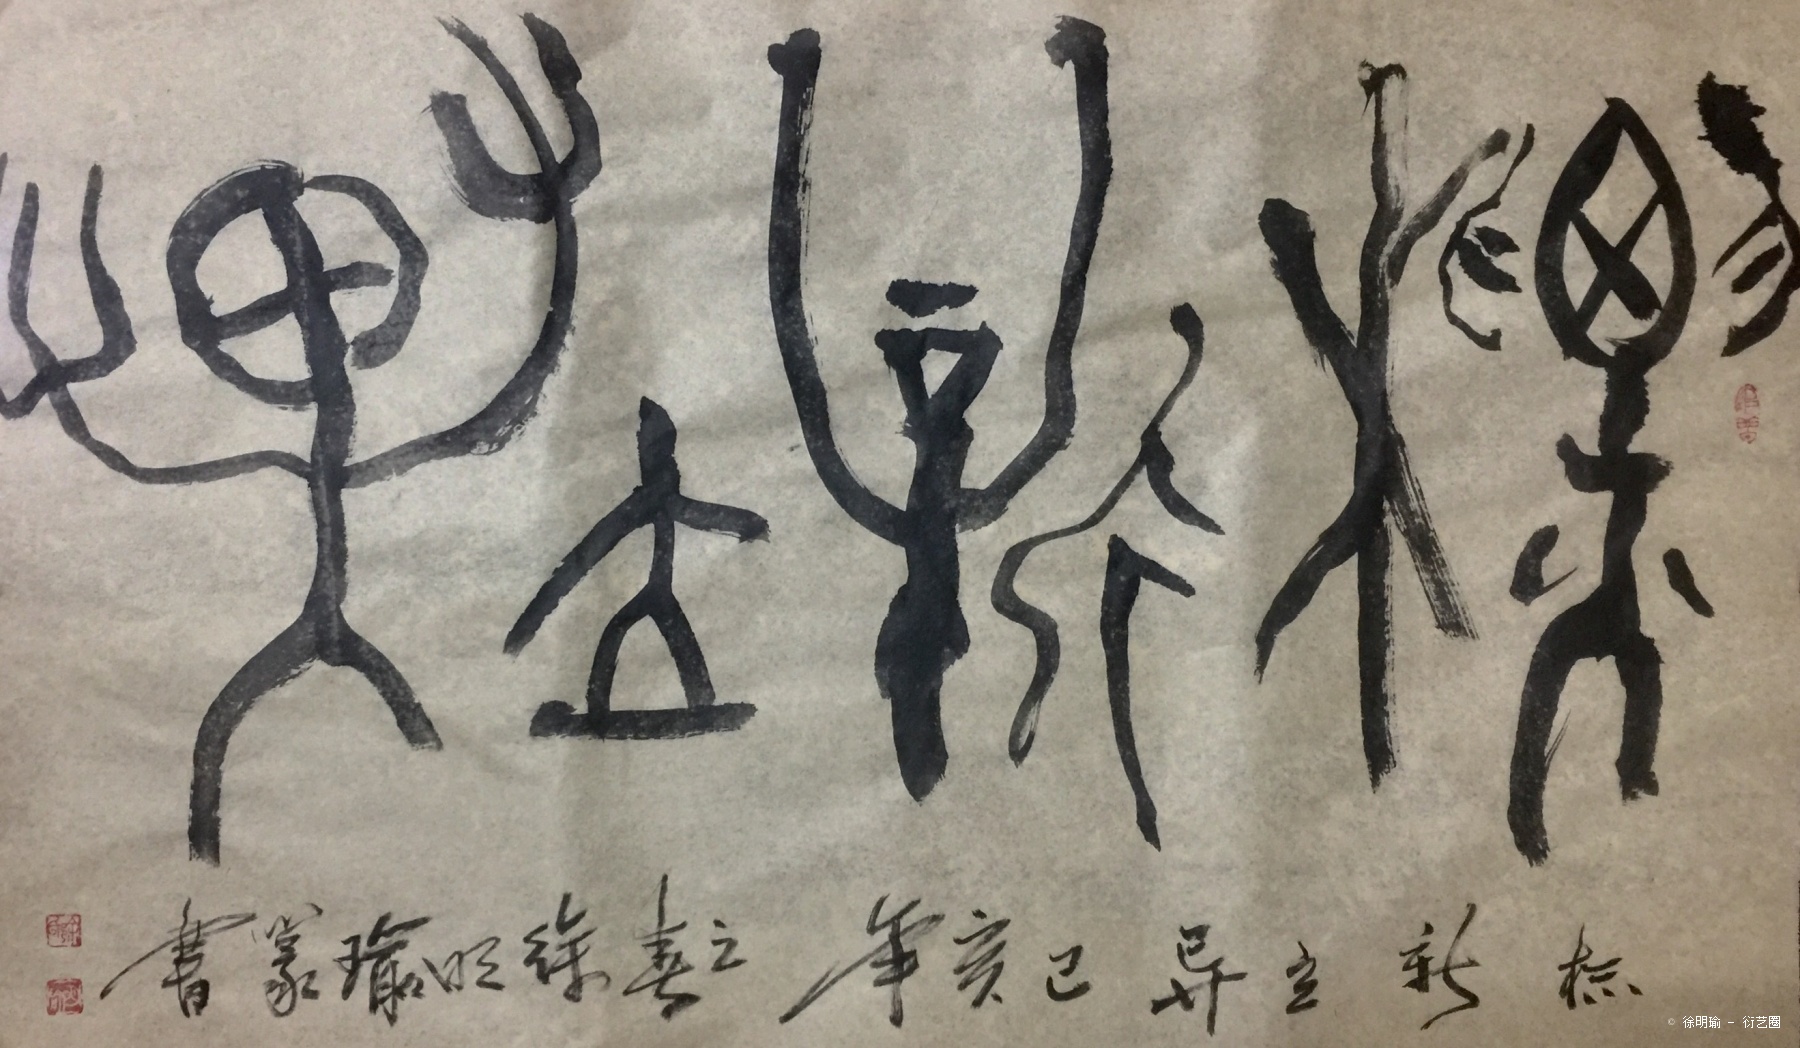 標新立異
标新立异己亥年之春徐明瑜篆書
© 徐明瑜 - 衍艺圈